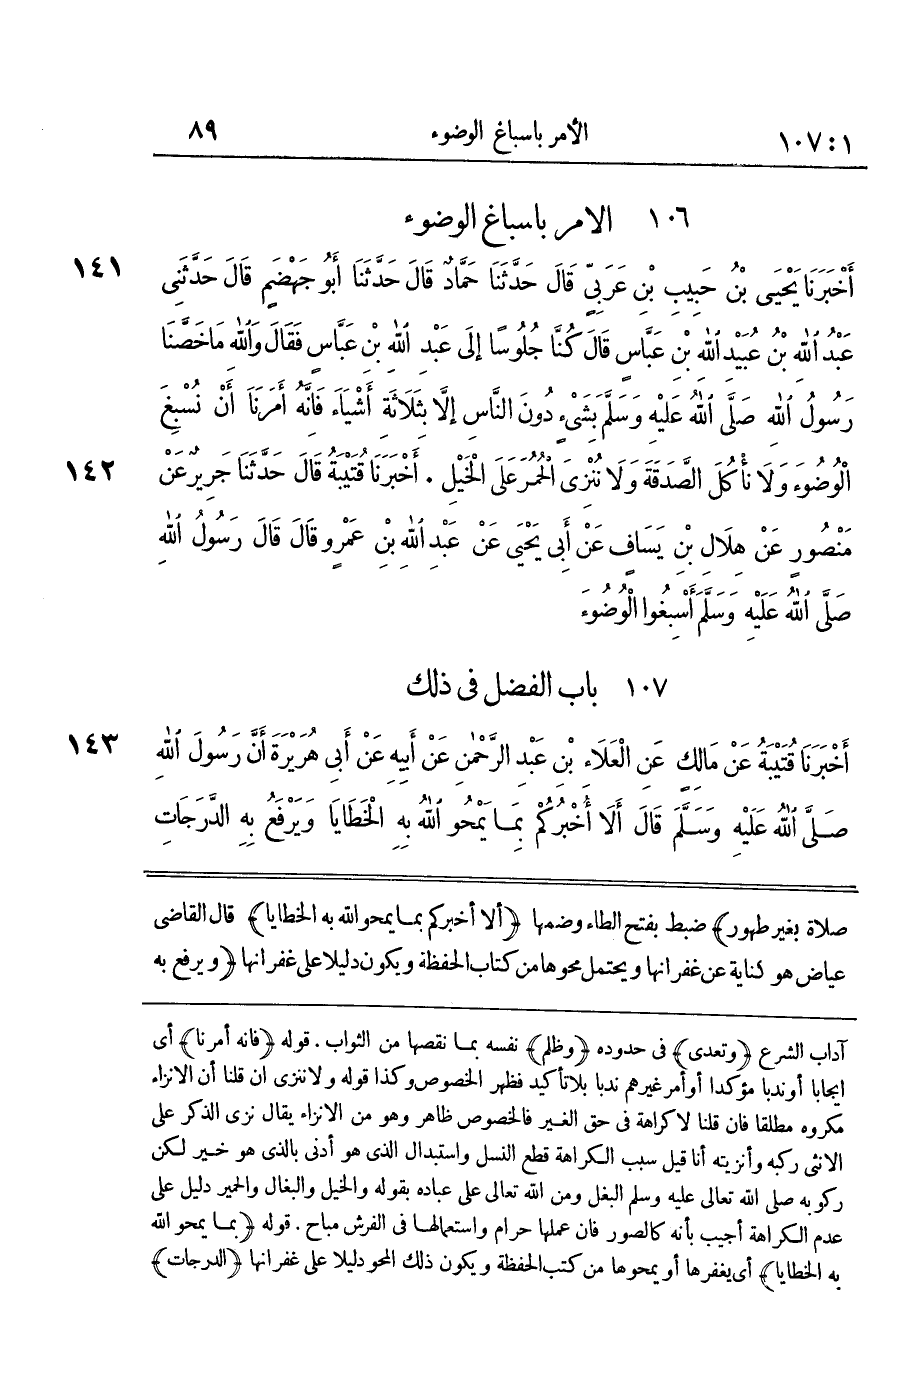 ١٠٧:١ الأمر باسباغ الوضوء ٨٩
١٠٦ الامر باسباغ الوضوء
أَخْبَرَنَا يَحْيَى بْنُ حَبِيبِ بْنِ عَرَبِيٍّ قَالَ حَدَّثَنَا حَمَّادٌ قَالَ حَدَّثَنَا أَبُو جَهْضَمٍ قَالَ حَدَّثَنِى ١٤١
عَبْدُ اللهِ بْنُ عُبَيْدِ اللهِ بْنِ عَبَّاسٍ قَالَ كُنَّا جُلُوسًا إِلَى عَبْدِ اللهِ بْنِ عَبَّاسٍ فَقَالَ وَاللهِ مَا خَصَّنَا
رَسُولُ اللهِ صَلَّى اللهُ عَلَيْهِ وَسَلَّمَ بِشَىْءٍ دُونَ النَّاسِ إِلَّا بِثَلَاثَةِ أَشْيَاءَ فَانَّهُ أَمَرَنَا أَنْ نُسْبِغَ
الْوُضُوءَ وَلَا نَأْكُلَ الصَّدَقَةَ وَلَا نُنْزِىَ الْحُمُرَ عَلَى الْخَيْلِ . أَخْبَرَنَا قُتَيْبَةُ قَالَ حَدَّثَنَا جَرِيرٌ عَنْ ١٤٢
مَنْصُورٍ عَنْ هِلَالِ بْنِ يَسَافٍ عَنْ أَبِى يَحْيَى عَنْ عَبْدِ اللهِ بْنِ عَمْرٍو قَالَ قَالَ رَسُولُ اللهِ
صَلَّى اللهُ عَلَيْهِ وَسَلَّمَ أَسْبِغُوا الْوُضُوءَ
١٠٧ باب الفضل فى ذلك
أَخْبَرَنَا قُتَيْبَةُ عَنْ مَالِكٍ عَنِ الْعَلَاءِ بْنِ عَبْدِ الرَّحْمٰنِ عَنْ أَبِيهِ عَنْ أَبِى هُرَيْرَةَ أَنَّ رَسُولَ اللهِ ١٤٣
صَلَّى اللهُ عَلَيْهِ وَسَلَّمَ قَالَ أَلَا أُخْبِرُكُمْ بِمَا يَمْحُو اللهُ بِهِ الْخَطَايَا وَيَرْفَعُ بِهِ الدَّرَجَاتِ
صلاة بغير طهور﴾ ضبط بفتح الطاء وضمها ﴿ألا أخبركم بما يمحو الله به الخطايا﴾ قال القاضى
عياض هو كناية عن غفرانها ويحتمل محوها من كتاب الحفظة ويكون دليلا على غفرانها ﴿ويرفع به
آداب الشرع ﴿وتعدى﴾ فى حدوده ﴿وظلم﴾ نفسه بما نقصها من الثواب . قوله ﴿فانه أمرنا﴾ أى
ايجابا أو ندبا مؤكدا أو أمر غيرهم ندبا بلا تأكيد فظهر الخصوص وكذا قوله ولا ننزى ان قلنا أن الانزاء
مكروه مطلقا فان قلنا لا كراهة فى حق الغير فالخصوص ظاهر وهو من الانزاء يقال نزى الذكر على
الانثى ركبه وأنزيته أنا قيل سبب الكراهة قطع النسل واستبدال الذى هو أدنى بالذى هو خير لكن
ركوبه صلى الله تعالى عليه وسلم البغل ومن الله تعالى على عباده بقوله والخيل والبغال والحمير دليل على
عدم الكراهة أجيب بأنه كالصور فان عملها حرام واستعمالها فى الفرش مباح . قوله ﴿بما يمحو الله
به الخطايا﴾ أى يغفرها أو يمحوها من كتب الحفظة ويكون ذلك المحو دليلا على غفرانها ﴿الدرجات﴾